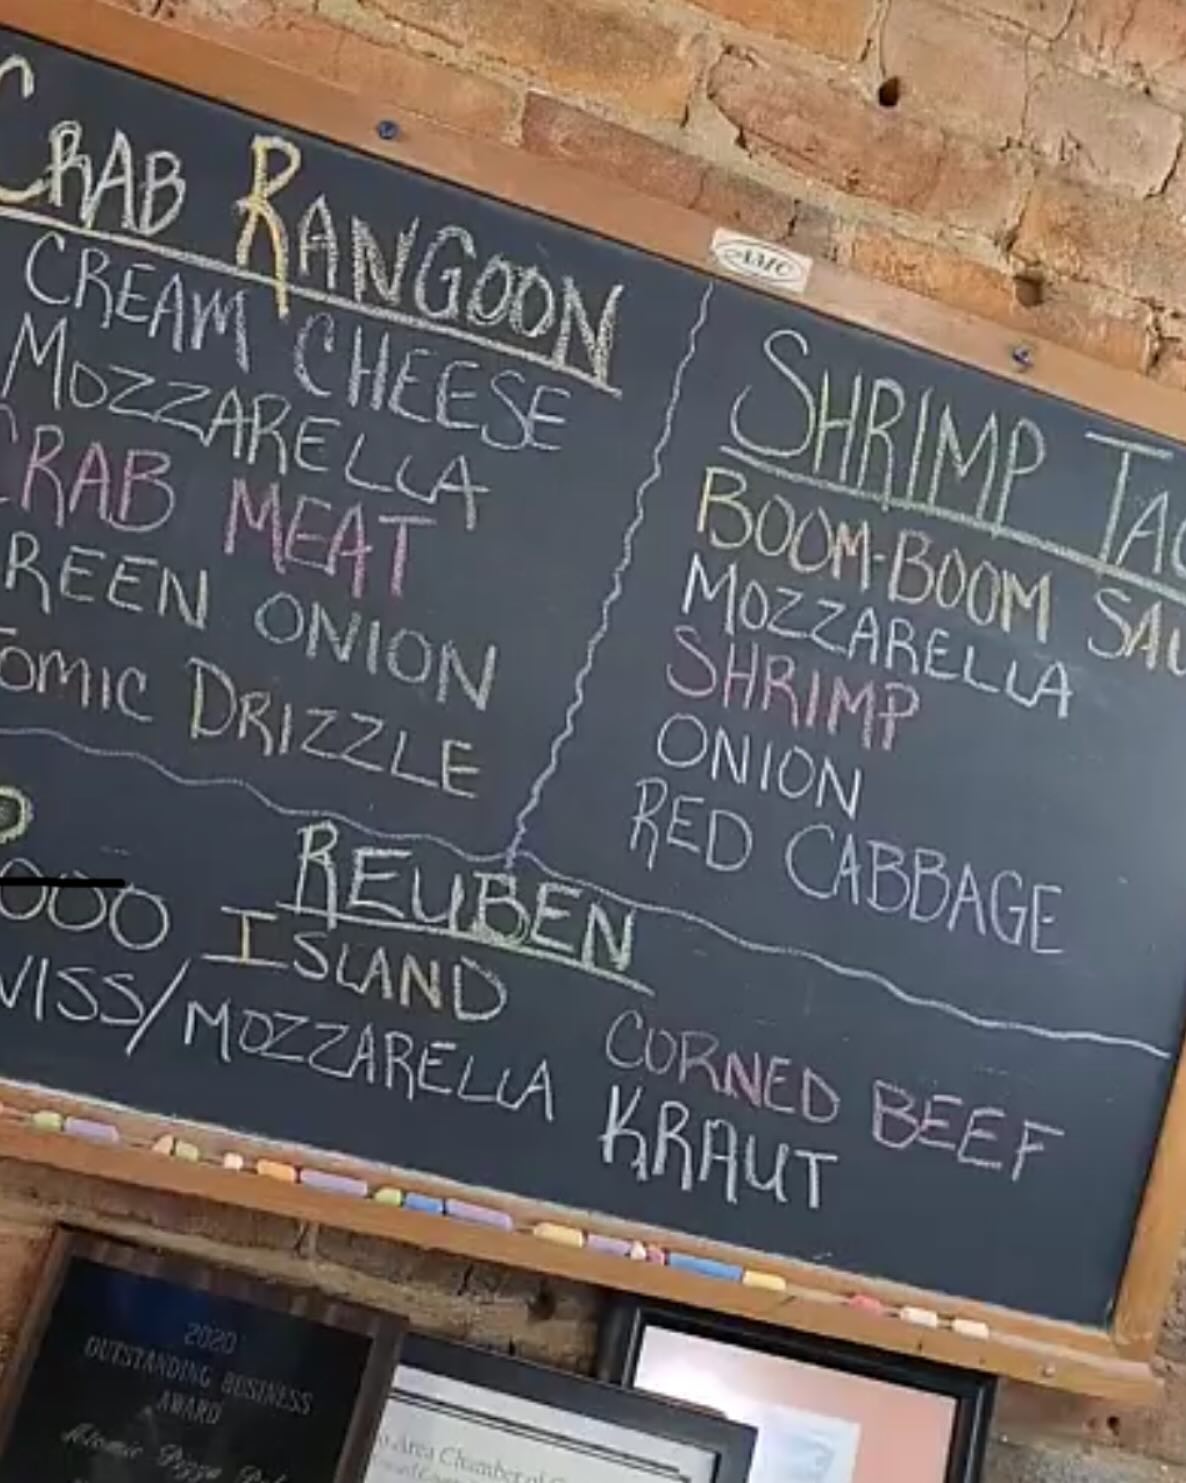 CRAB RANGOON
CREAM CHEESE
MOZZARELLA
CRAB MEAT
REEN ONION
TOMIC DRIZZLE
AMC
SHRIMP TAC
BOOM-BOOM SAU
MOZZARELLA
SHRIMP
ONION
RED CABBAGE
REUBEN
000 ISLAND
WISS/MOZZARELLA
CORNED BEEF
KRAUT
2020
OUTSTANDING BUSINESS
AWARD
Atomic Pizza
Area Chamber of